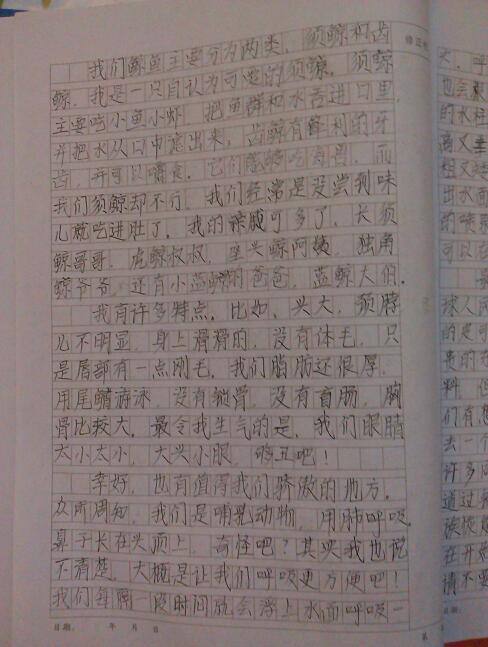 修正
我们鲸鱼主要分为两类，须鲸和齿
鲸。我是一只自认为可爱的须鲸。须鲸
主要吃小鱼小虾，把鱼群和水舌进口里，
并把水从口中滤出来，齿鲸有锋利的牙
齿，并可以嚼食，它们能够吃海兽。而
我们须鲸却不行。我们经常是没尝到味
儿就吃进肚了。我的亲戚可多了，长须
鲸哥哥，虎鲸叔叔，座头鲸阿姨，独角
鲸爷爷，还有小蓝鲸的爸爸，蓝鲸大伯。
我有许多特点。比如，头大，颈脖
儿不明显，身上滑滑的，没有体毛，只
是唇部有一点刚毛。我们脂肪还很厚，
用尾鳍游泳，没有锁骨，没有盲肠，胸
骨比较大。最令我生气的是，我们眼睛
太小太小，大头小眼，够丑吧！
幸好，也有值得我们骄傲的地方。
众所周知，我们是哺乳动物，用肺呼吸。
鼻子长在头顶上，奇怪吧？其实我也说
不清楚，大概是让我们呼吸更方便吧！
我们每隔一段时间就会浮上水面呼吸一
日期： 年 月 日
第
大，呼
也会
的水柱
高又
粗又
出水面
的喷
可以
球人
的是可
贵的
料，但
们有
去一个
许多
通过
族
在开
请不要
日期：